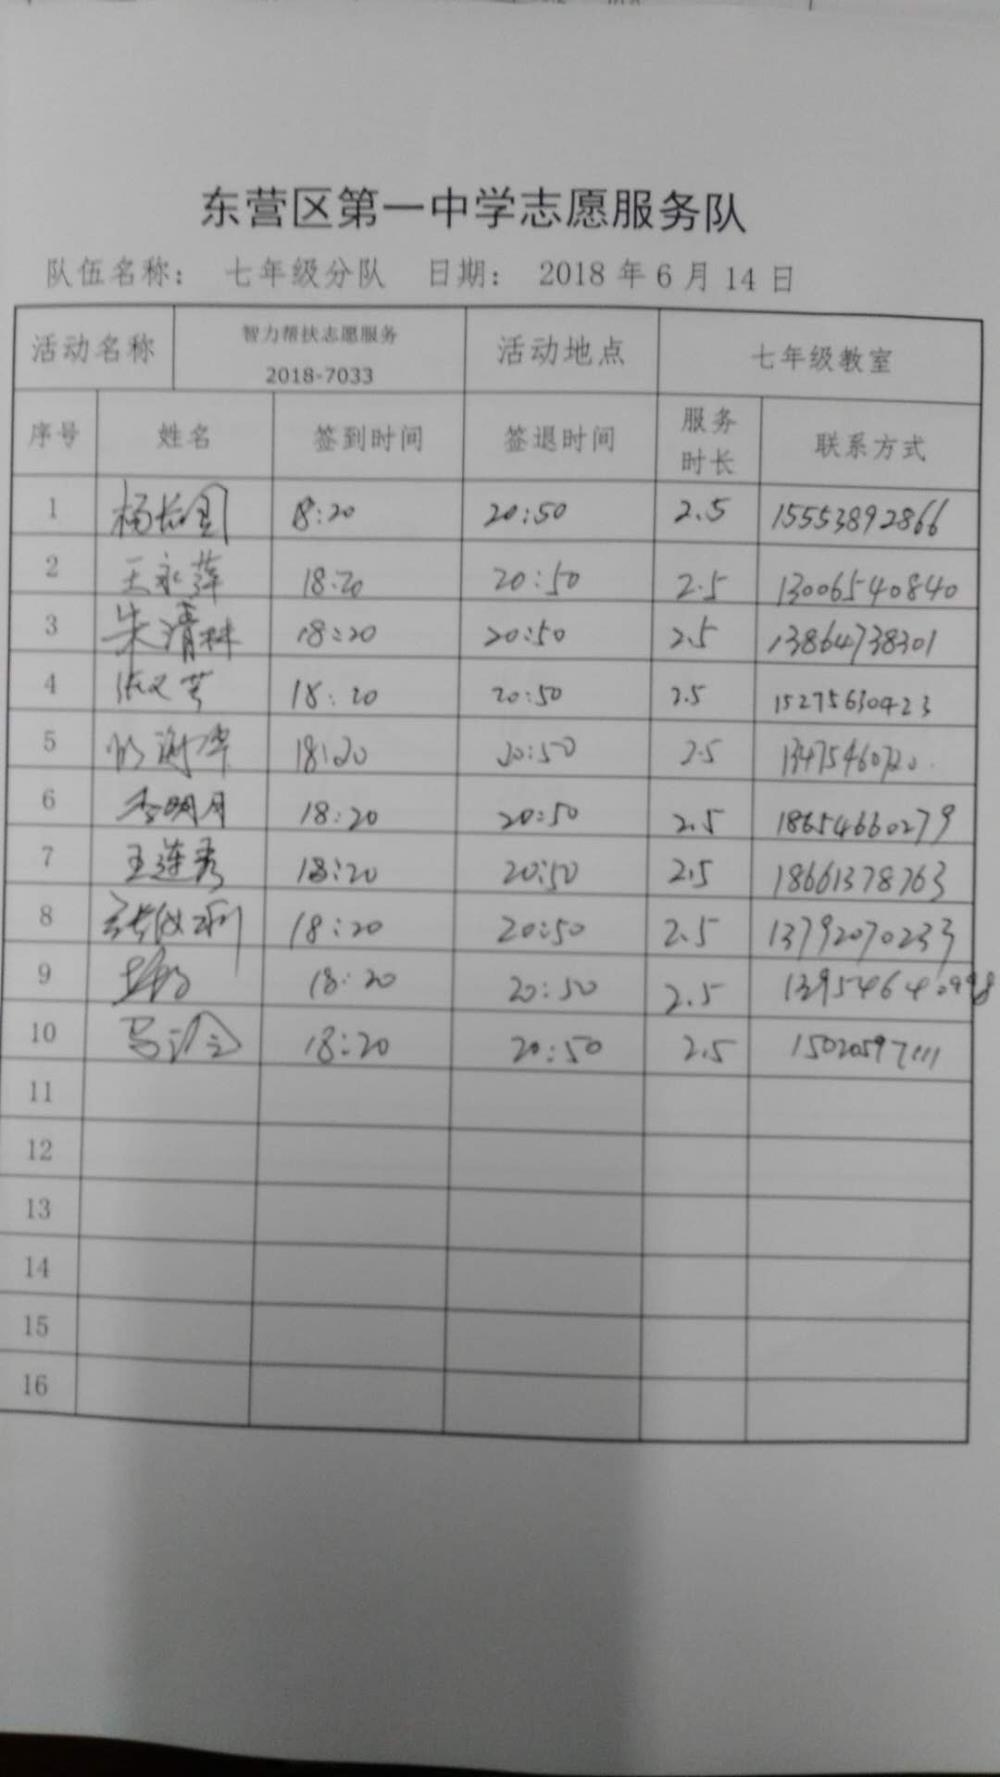 东营区第一中学志愿服务队
队伍名称： 七年级分队 日期： 2018年6月14日
活动名称 智力帮扶志愿服务 2018-7033 活动地点 七年级教室
序号 姓名 签到时间 签退时间 服务时长 联系方式
1 18:20 20:50 2.5 15553892866
2 王永萍 18:20 20:50 2.5 13006540840
3 朱清林 18:20 20:50 2.5 13864738301
4 18:20 20:50 2.5 15275630423
5 18:20 20:50 2.5
6 李明月 18:20 20:50 2.5 18654660279
7 王连秀 18:20 20:50 2.5 18661378763
8 18:20 20:50 2.5 13792070233
9 18:20 20:50 2.5
10 18:20 20:50 2.5 15020597111
11
12
13
14
15
16